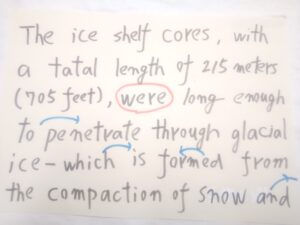 The ice shelf cores, with
a tatal length of 215 meters
(705 feet), were long enough
to penetrate through glacial
ice-which is formed from
the compaction of snow and